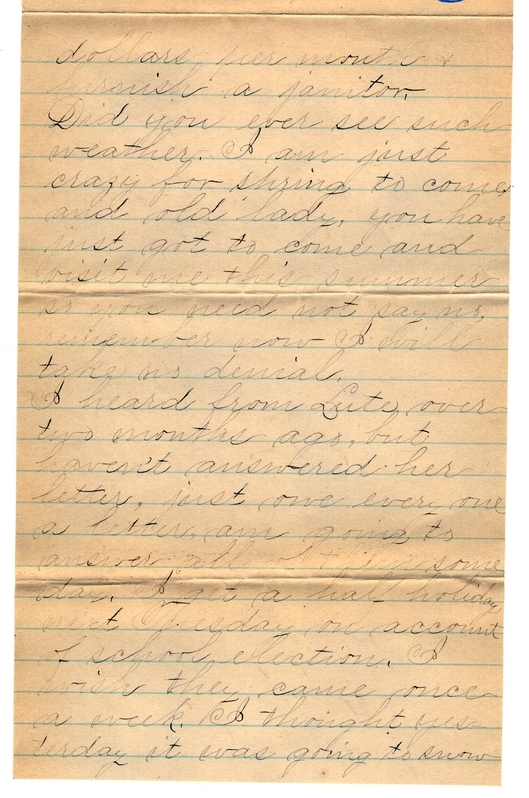 dollars per month &
furnish a janitor.
Did you ever see such
weather. I am just
crazy for spring to come,
and old lady, you have
just got to come and
visit me this summer
so you need not say no,
remember now I will
take no denial.
I heard from Lute over
two months ago, but
haven't answered her
letter, just owe ever one
a letter, am going to
answer all of them some
day. I get a half holiday,
next Tuesday on account
of school election. I
wish they came once
a week. I thought yes-
terday it was going to snow